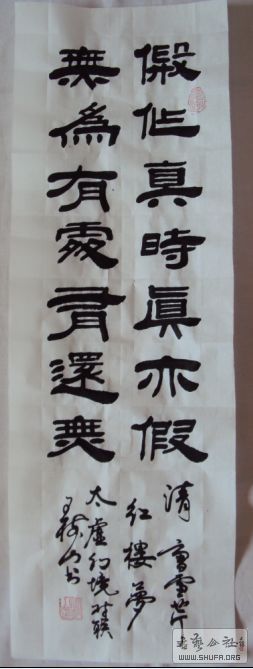 假作真時真亦假
無為有處有還無
清 曹雪芹
紅樓夢
太虛幻境對聯
書藝公社
WWW.SHUFA.ORG